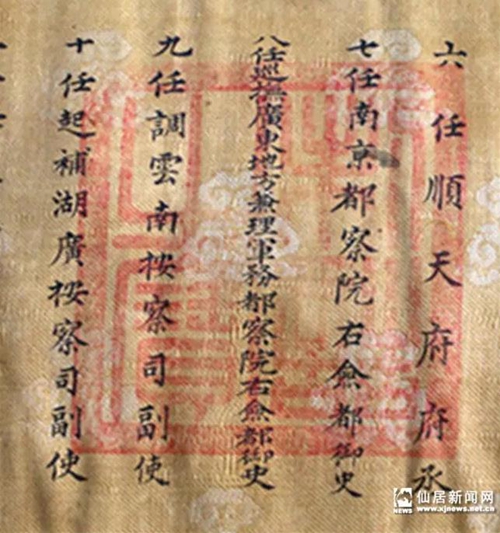 六任順天府府丞
七任南京都察院右僉都御史
八任巡撫廣東地方兼理軍務都察院右僉都御史
九任調雲南按察司副使
十任起補湖廣按察司副使
仙居新闻网
NEWS www.xjnews.net.cn